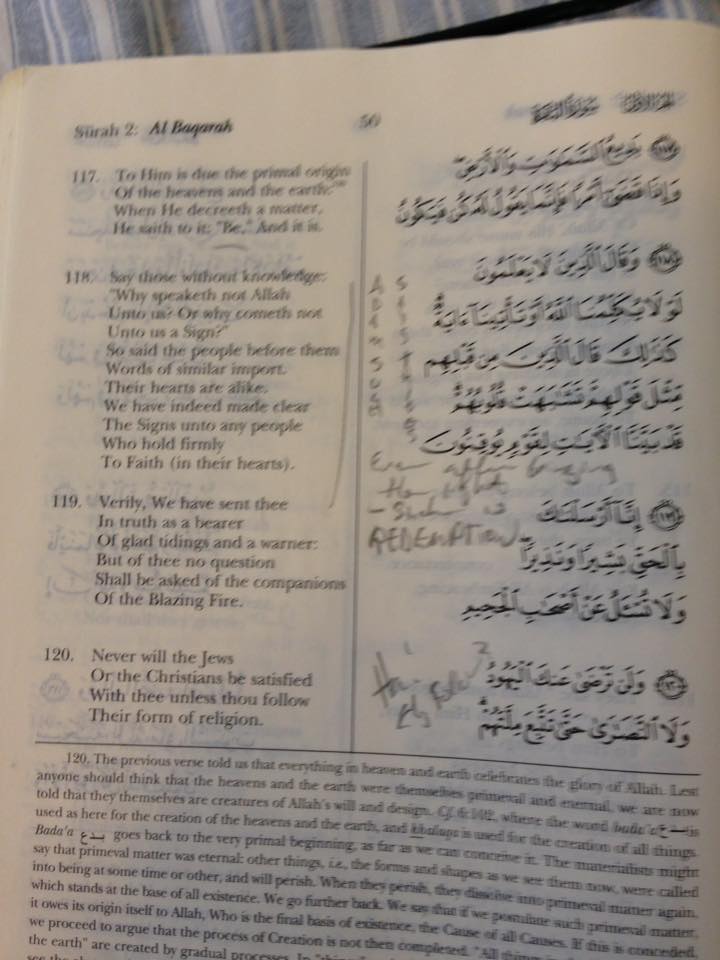 Sūrah 2: Al Baqarah
56
117. To Him is due the primal origin
Of the heavens and the earth:
When He decreeth a matter,
He saith to it: "Be," And it is.
118. Say those without knowledge:
"Why speaketh not Allah
Unto us? Or why cometh not
Unto us a Sign?"
So said the people before them
Words of similar import.
Their hearts are alike.
We have indeed made clear
The Signs unto any people
Who hold firmly
To Faith (in their hearts).
119. Verily, We have sent thee
In truth as a bearer
Of glad tidings and a warner:
But of thee no question
Shall be asked of the companions
Of the Blazing Fire.
120. Never will the Jews
Or the Christians be satisfied
With thee unless thou follow
Their form of religion.
بَدِيعُ السَّمَوَاتِ وَالْأَرْضِ
وَإِذَا قَضَى أَمْرًا فَإِنَّمَا يَقُولُ لَهُ كُن فَيَكُونُ
وَقَالَ الَّذِينَ لَا يَعْلَمُونَ
لَوْلَا يُكَلِّمُنَا اللَّهُ أَوْ تَأْتِينَا ءَايَةٌ
كَذَلِكَ قَالَ الَّذِينَ مِن قَبْلِهِم
مِّثْلَ قَوْلِهِمْ تَشَابَهَتْ قُلُوبُهُمْ
قَدْ بَيَّنَّا الْآيَاتِ لِقَوْمٍ يُوقِنُونَ
Even after
REDEMPTION
إِنَّا أَرْسَلْنَاكَ
بِالْحَقِّ بَشِيرًا وَنَذِيرًا
وَلَا تُسْئَلُ عَنْ أَصْحَابِ الْجَحِيمِ
وَلَن تَرْضَى عَنكَ الْيَهُودُ
وَلَا النَّصَارَى حَتَّى تَتَّبِعَ مِلَّتَهُمْ
120. The previous verse told us that everything in heaven and earth celebrates the glory of Allah. Lest
anyone should think that the heavens and the earth were themselves primeval and eternal, we are now
told that they themselves are creatures of Allah's will and design. Cf. 6:102, where the word bada'a بدع is
used as here for the creation of the heavens and the earth, and khalaqa is used for the creation of all things.
Bada'a بدع goes back to the very primal beginning, as far as we can conceive it. The materialists might
say that primeval matter was eternal: other things, i.e., the forms and shapes as we see them now, were called
into being at some time or other, and will perish. When they perish, they dissolve into primeval matter again,
which stands at the base of all existence. We go further back. We say that if we postulate such primeval matter,
it owes its origin itself to Allah, Who is the final basis of existence, the Cause of all Causes. If this is conceded,
we proceed to argue that the process of Creation is not then completed. "All things in
the earth" are created by gradual processes. In